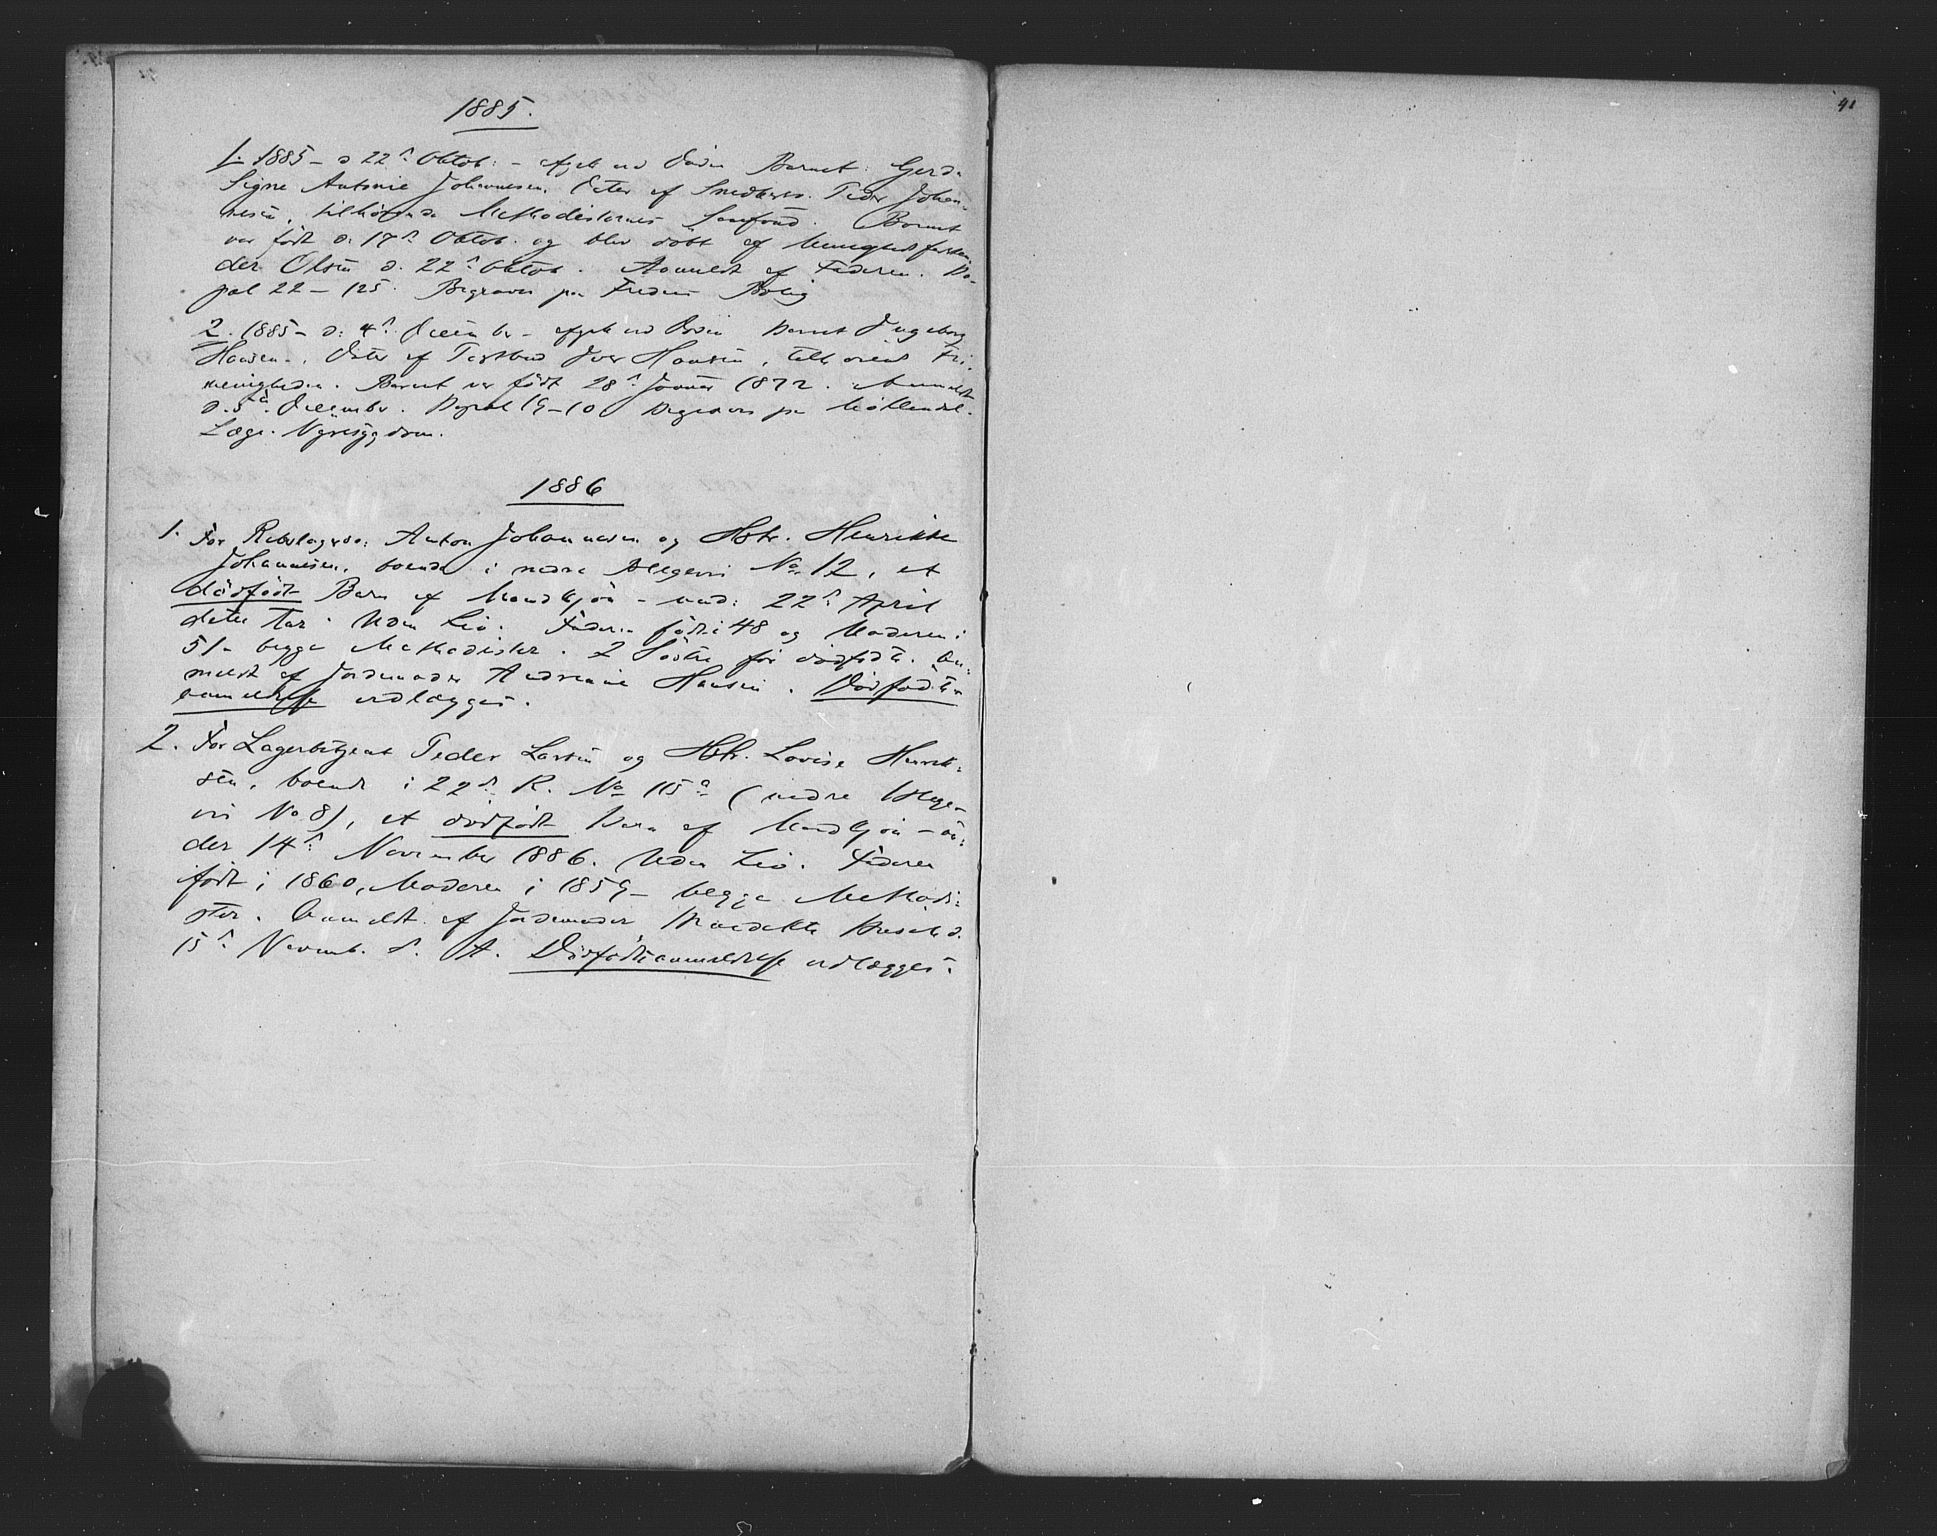 41
1885.
1. 1885 - d 22d Oktob: - afgik ved Døden Barnet: Gerda
Signe Antonie Johannesen, Dater af Snedkers. Peder Johan-
nesen, tilhørende Methodisternes Samfund. Barnet
var født d. 17d Oktob. og blev døbt af Menighedsforstan
der Olsen d. 22d Oktob. Anmeldt af Faderen. Ko-
pal 22 - 125. Begraves paa Fredens Bolig
2. 1885 - d: 4d December - afgik ved Døden Barnet Ingeborg
Hansen, Dater af Iver Hansen, tilhørende Fri-
menigheden. Barnet var født 28d Januar 1872. Anmeldt
d. 5d December. Kopal 19-10 Begraves paa Møllendal.
Læge. Nyresygdom.
1886
1. For Rebslagersv: Anton Johannesen og Hstr. Henrikke
Johannesen, boende i nedre Allegeni No 12, et
dödfödt Barn af Mandkjön - und: 22d April
dette Aar. Uden Liv. Faderen född i 48 og Moderen i
51 - begge Methodister. 2 Söstre för dödfödte. An-
meldt af Jordemoder Andreane Hansen. Dödfödte-
anmeldelse vedlægges.
2. For Lagerbetjent Peder Larsen og Hstr. Lovise Henrik-
sen, boende i 22d R. No 115a (nedre
No 8), et dödfödt Barn af Mandkjön - ün-
der 14d November 1886. Uden Liv. Faderen
födt i 1860, Moderen i 1859 - begge Methodi-
ster. Anmeldt af Jordemoder d.
15d Novemb. d. A. Dödfödteanmeldelse vedlægges.